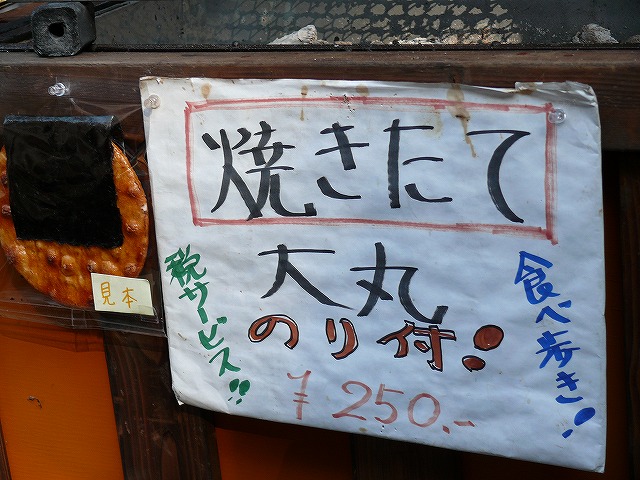 焼きたて
大丸
のり付!
¥250.-
税サービス!!
食べ歩き!
見本